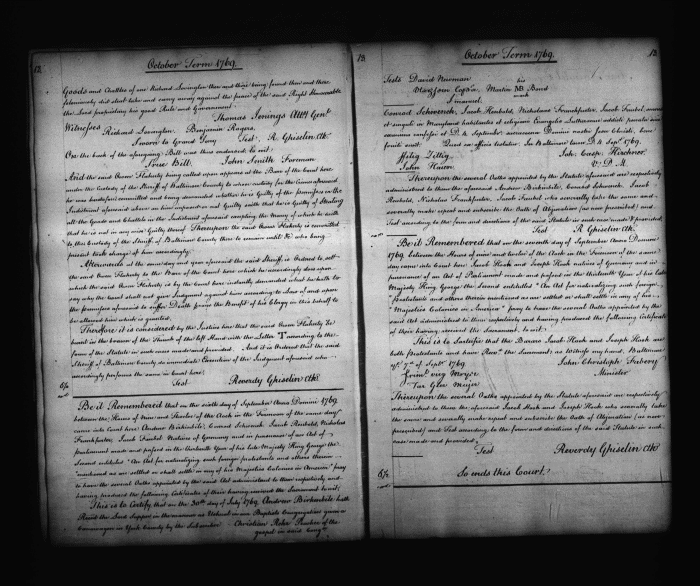 October Term 1769.
Goods and Chattles of one Richard Levington then and there being found then and there
feloniously did steal take and carry away against the peace of the said Right Honourable
the Lord proprietary his good Rule and Government.
Thomas Jenings Atty Genl
Witnesses Richard Levington Benjamin Rogers
Sworn to Grand Jury Test R Ghiselin Clk
On the back of the aforegoing Bill was thus endorsed to wit
True Bill. John Smith Foreman
And the said Owen Flaherty being called upon appears at the Bar of the Court here
under the Custody of the Sheriff of Baltimore County to whose custody for the Crime aforesaid
he was heretofore committed and being demanded whether he is Guilty of the premises in the
Indictment aforesaid whereon he now impeached or not Guilty saith that he is Guilty of Stealing
all the Goods and Chattels in the Indictment aforesaid excepting the Money of which he saith
that he is not in any wise Guilty thereof Thereupon the said Owen Flaherty is committed
to the Custody of the Sheriff of Baltimore County there to remain until &c who being
present took charge of him accordingly
Afterwards at the same day and year aforesaid the said Sheriff is Ordered to set
the said Owen Flaherty to the Bar of the Court here which he accordingly does upon
which the said Owen Flaherty is by the Court here instantly demanded what he hath to
say why the Court shall not give Judgment against him according to Law of and upon
the premises aforesaid to suffer Death Craves the Benefit of his Clergy in this behalf to
be allowed him which is granted
Therefore it is considered by the Justices here that the said Owen Flaherty be
burnt in the brawn of the Thumb of the left Hand with the Letter T according to the
form of the Statute in such case made and provided. And it is Ordered that the said
Sheriff of Baltimore County do immediate Execution of the Judgment aforesaid who
accordingly performed the same in Court here
Test Reverdy Ghiselin Clk
Be it Remembered that on the sixth day of September Anno Domini 1769
between the Hours of Nine and Twelve of the Clock in the Forenoon of the same day
came into Court here Andrew Birkinbile, Conrad Schwenck, Jacob Reubold, Nicholas
Frankfurter, Jacob Fraubel Natives of Germany and in pursuance of an Act of
parliament made and passed in the thirteenth Year of his late Majesty King George the
Second entituled "An Act for naturalizing such foreign protestants and others therein
"mentioned as are settled or shall settle in any of his Majesties Colonies in America" pray
to have the several Oaths appointed by the said Act administered to them respectively and
having produced the following Certificates of their having received the Sacrament to wit.
This is to Certify that on the 30th day of July 1769, Andrew Birkinbile hath
Receivd the Lords Supper in the manner as Usheral in our Baptists Congregation
Connewagen in York County by the Subscriber Christian Rohr Preacher of the
gospel in said Congn
October Term 1769.
Tests David Newman
his
Mart Baud
mark
Conrad Schwenck, Jacob Reubold, Nicholaus Frankfurter, Jacob Fraubel, omnes
Philip Zittig John Casp. Kirchner,
John Hauer V: D: M.
Thereupon the several Oaths appointed by the Statute aforesaid are respectively
administered to them the aforesaid Andrew Birkinbile, Conrad Schwenck, Jacob
Reubold, Nicholas Frankfurter, Jacob Fraubel who severally take the same and
severally make repeat and subscribe the Oath of Abjuration (as now presented) and
Test according to the form and directions of the same Statute in such case made & provided
Test R Ghiselin Clk.
Be it Remembered that on the seventh day of September Anno Domini
1769 between the Hours of nine and twelve of the Clock in the Forenoon of the same
day came into Court here Jacob Hack and Joseph Hack natives of Germany and in
pursuance of an Act of Parliament made and passed in the thirteenth Year of his late
Majesty King George the Second entitled "An Act for naturalizing such foreign
"protestants and others therein mentioned as are settled or shall settle in any of his
"Majesties Colonies in America" pray to have the several Oaths appointed by the
said Act administered to them respectively and having produced the following Certificate
of their having received the Sacrament to wit.
This is to Sartefie that the Barars Jacob Hack and Joseph Hack are
both protestants and have Recvd the Sacrament as Witness my hand. Baltimore
ye 7th of Septr 1769 John Christoph Faberey
Minister
Thereupon the several Oaths appointed by the Statute aforesaid are respectively
administered to them the aforesaid Jacob Hack and Joseph Hack who severally take
the same and severally make repeat and subscribe the Oath of Abjuration (as now
presented) and Test according to the form and directions of the said Statute in such
case made and provided,
Test Reverdy Ghiselin Clk
So ends this Court.